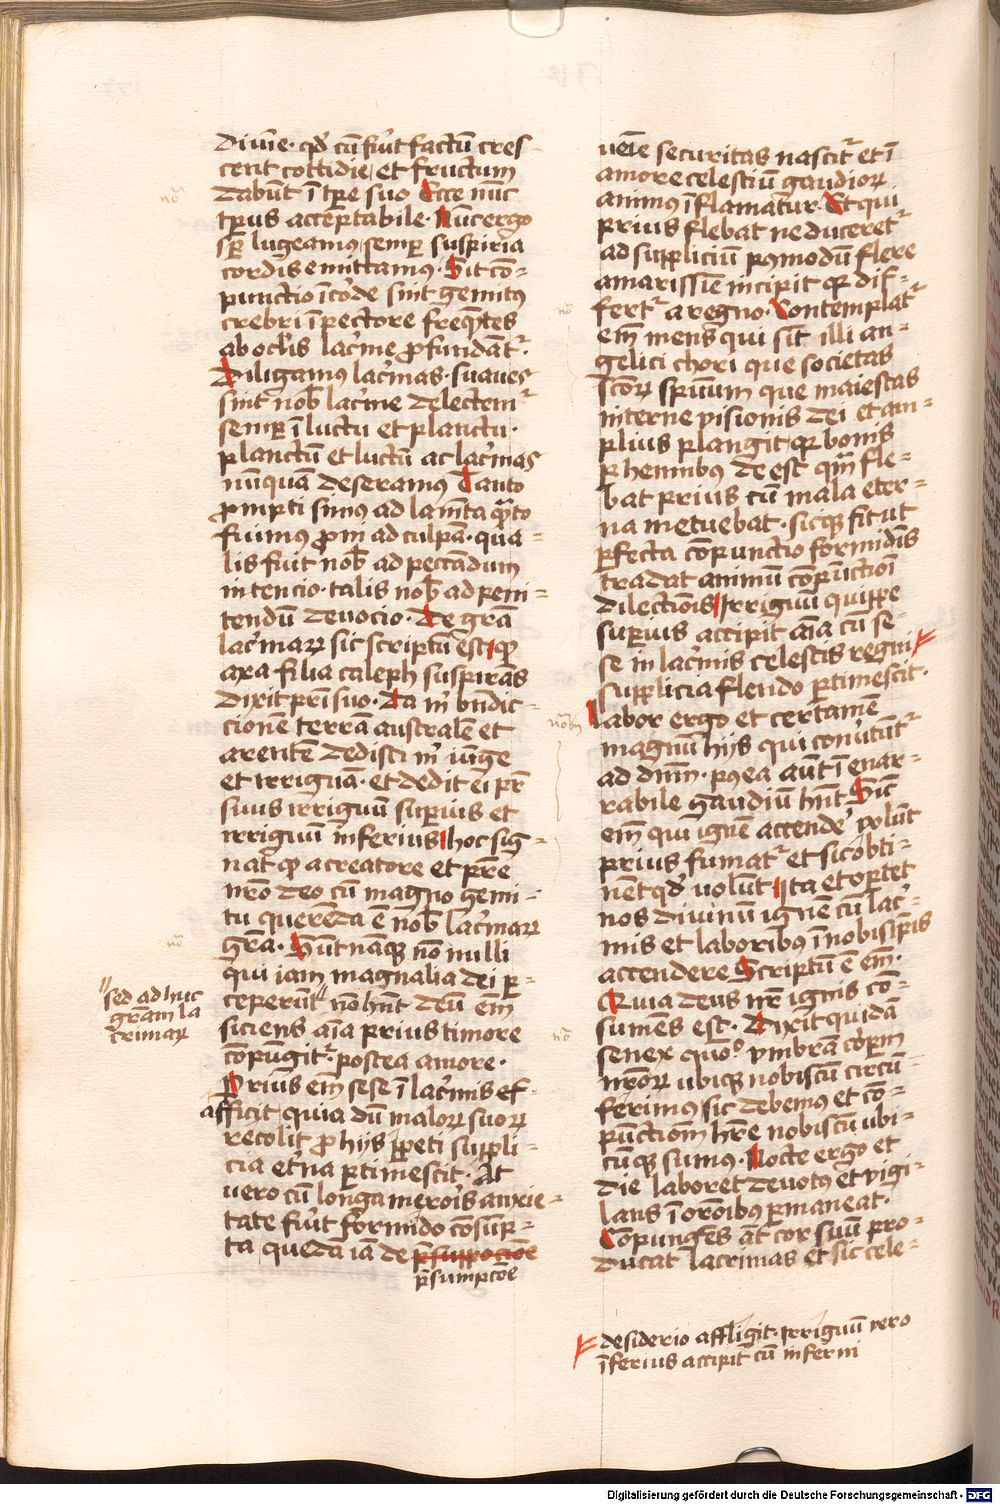 diuīe · qd' cū fiūt factū cres-
cent cottidie et fructum
dabūt ī tpe suo Ecce nūc
tpus acceptabile · Nūc ergo
sp lugeamus semp suspiria
cordis emittamus · Sit cō-
punctio ī corde sint gemitus
crebri ī pectore freqētes
ab oclis lacrime pfundāt'
Diligamus lacrimas · suaues
sint nob lacrime delectem'
semp ī luctu et planctu ·
planctū et luctū ac lacrimas
nūquā deseramus Tanto
prompti simus ad lamēta qnto
fuimus proni ad culpam · qua-
lis fuit nob ad peccandum
intencio · talis nob ad peni-
tendū deuocio · De grā
lacrimarum sic scriptū est qd
axa filia caleph suspirās
dixit pri suo · Da m' bndic-
cionē terrā australē et
arentē dedisti m' iunge
et irriguā · et dedit ei pr
suus irriguū supius et
irriguū inferius hoc sig-
nat qd a creatore et pre
nro deo cū magno gemi-
tu querēda ē nob lacrimarum
grā · Sūt namque nō nulli
qui iam magnalia dei p-
ceperūt nō hnt deū em
siciens aīa prius timore
cōpūgit' · postea amore ·
Prius em sese ī lacrimis ef-
afficit quia dū malorum suorum
recolit pro hijs ppeti suppli-
cia etna ptimescit · At
vero cū longa meroris anxie-
tate fiūt formido cōsūp-
ta quedā iā de psumpcōe
psumptōe
sed adhuc
grām la
crimarum
uēie securitas nascit' et ī
amore celestiū gaudiorum
animus īflamatur · Et qui
prius flebat ne duceret'
ad suppliciū pmodū flere
amarissīe incipit qd dif-
fert' a regno · Contemplat'
em mens qui sīt illi an-
gelici chori que societas
scōrum spirituum que maiestas
interne visionis dei et am-
plius plangit qd bonis
phennibus deest qm fle-
bat prius cū mala eter-
na metuebat · sicque fit ut
pfecta cōpunctio formidīs
tradat animū cōpūctiōi
dilectiōis Irriguū quippe
supius accipit aīa cū se-
se in lacrimis celestis regni
supplicia flendo ptimescit ·
Labor ergo et certamē
magnū hijs qui conūtūt'
ad dnm · postea aūt īenar-
rabile gaudiū hnt Sic
em qui ignē accende volūt
prius fumat' et sic obti-
nēt qd' uolūt Ita et optet
nos diuinū ignē cū lac-
mis et laboribus ī nobis ipis
accendere Scriptū ē em ·
Quia deus nr ignis cō-
sumēs est · Dixit quidā
senex quō vmbrā corpm
nrorum ubique nobiscū circū-
ferimus sic debemus et cō-
pūctiom hre nobiscū ubi-
cūque sumus · Nocte ergo et
die laboret deuotus et vigi-
lans ī orōibus pmaneat ·
Cōpungēs at cor suū pro-
ducat lacrimas et sic cele-
desiderio affligit · Irriguū vero
īferius accipit cū inferni
Digitalisierung gefördert durch die Deutsche Forschungsgemeinschaft - DFG